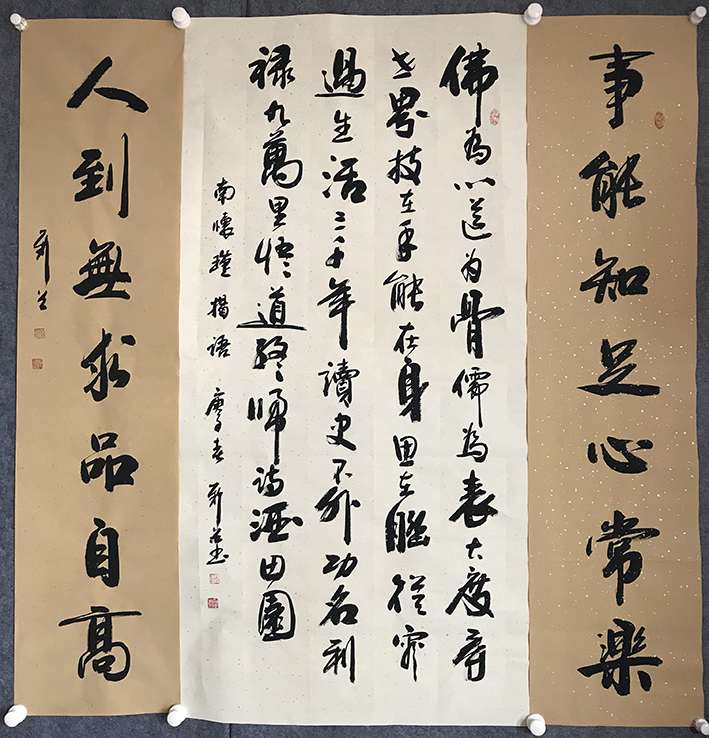 事能知足心常樂
佛為心道为骨儒為表大度看
世界技在手能在身思在腦從容
過生活三千年讀史不外功名利
祿九萬里悟道終歸詩酒田園
南懷瑾揭語 庚子春 書
人到無求品自高